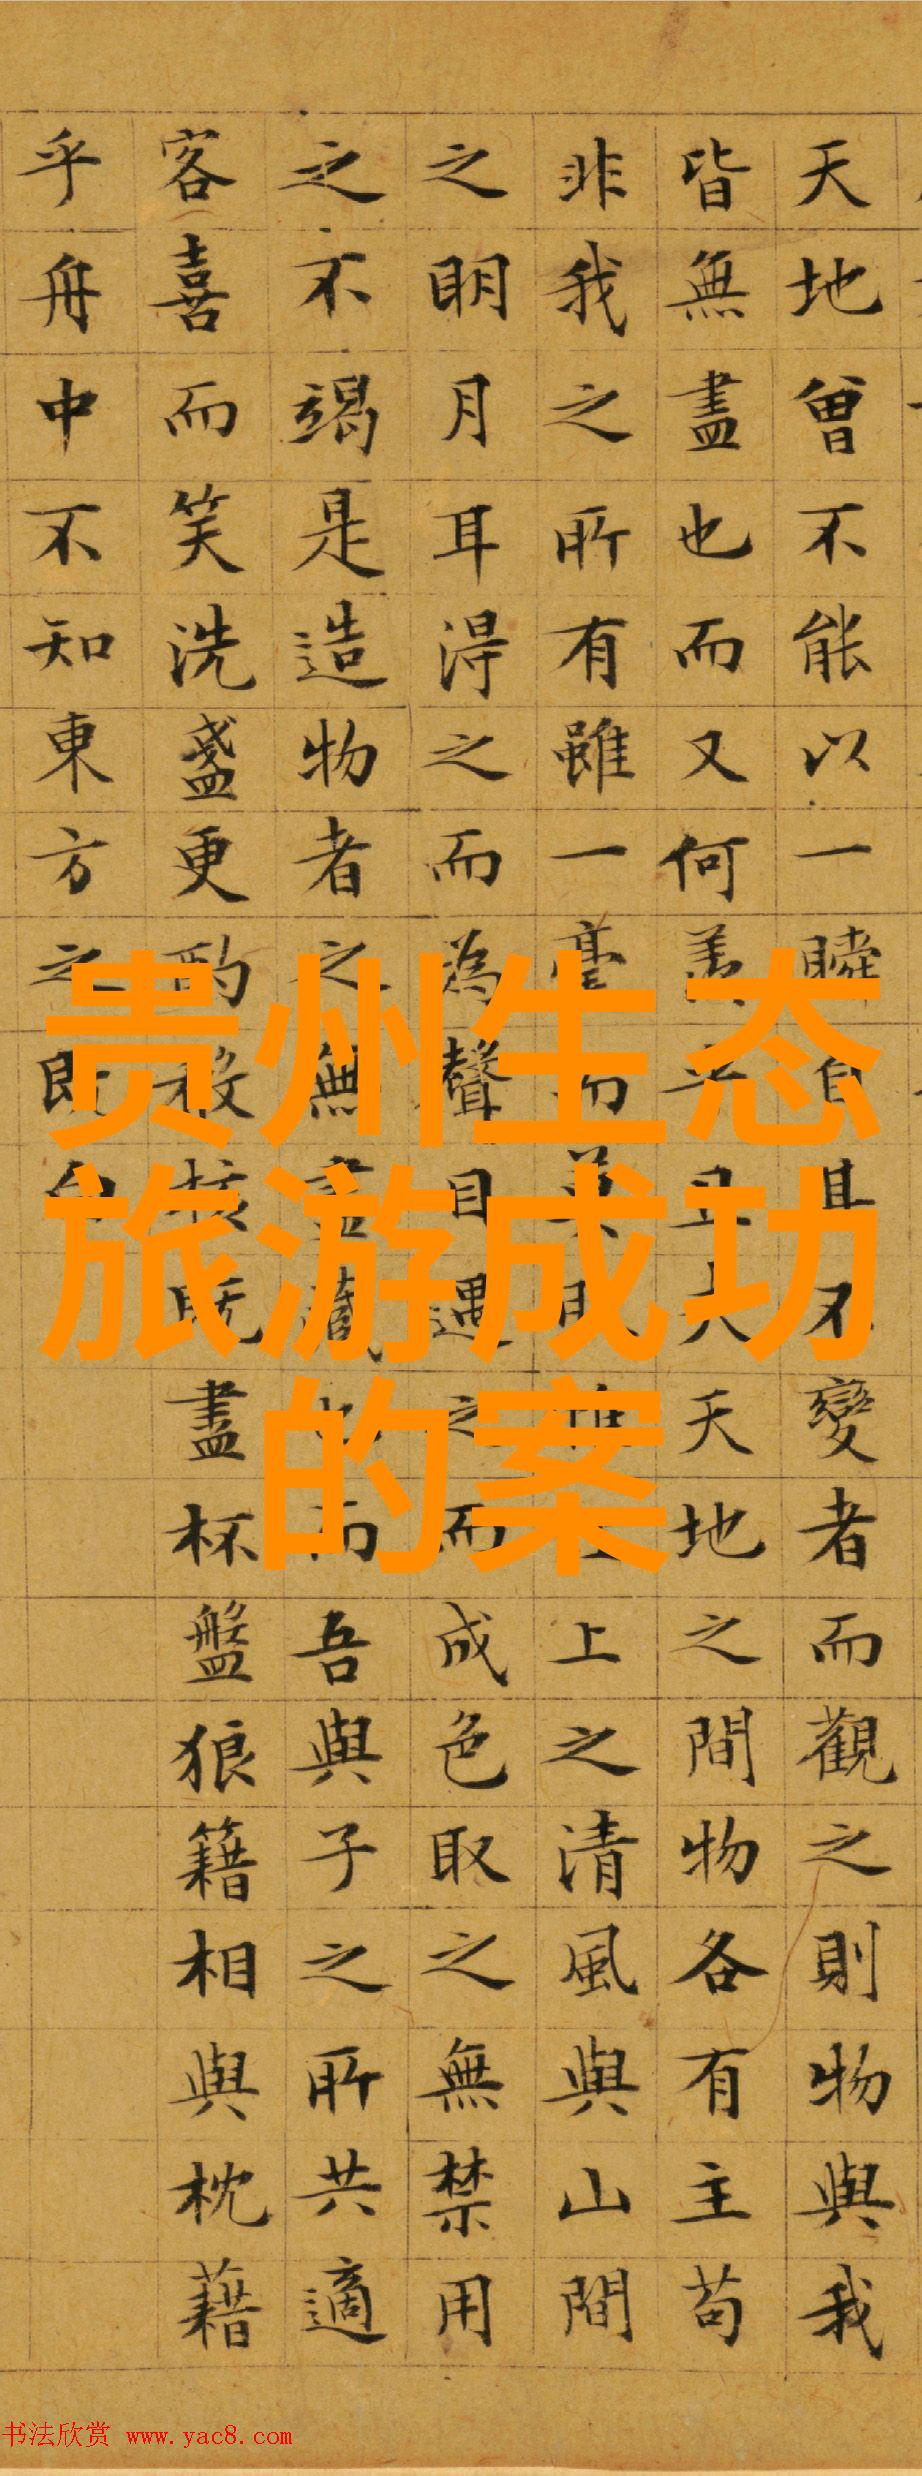 天地曾不能以一瞬自其不變者而觀之則物與我
皆無盡也而又何羨乎且夫天地之間物各有主苟
非我之所有雖一毫而莫取惟上之清風與山間
之明月耳得之而為聲目遇之而成色取之無禁用
之不竭是造物者之無盡藏也而吾與子之所共適
客喜而笑洗盞更酌殽核既盡杯盤狼籍相與枕藉
乎舟中不知東方之既白
贵州生态
旅游成功
的案
书法欣赏 www.yac8.com